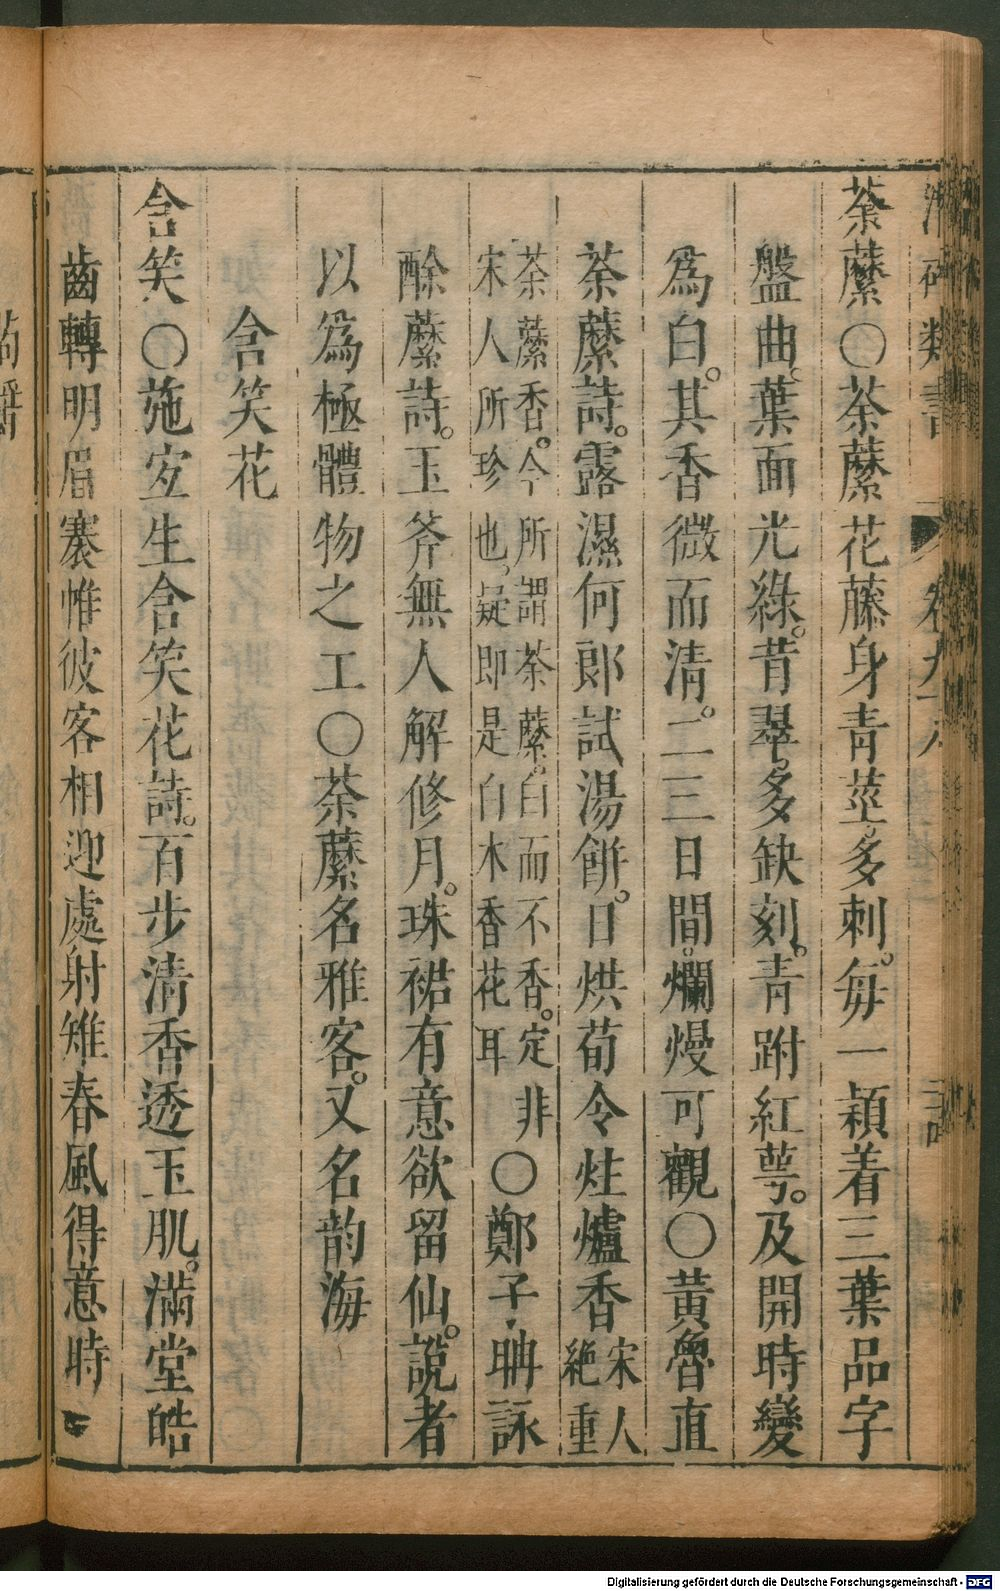 荼蘼〇荼蘼花藤身青莖多刺。每一穎着三葉品字
盤曲。葉面光綠。背翠。多缺刻。青跗紅萼。及開時變
爲白。其香微而清。二三日間。爛熳可觀〇黃魯直
荼蘼詩。露濕何郎試湯餅。日烘荀令炷爐香 宋人
絶重
荼蘼香。今所謂荼蘼。白而不香。定非
宋人所珍也。疑即是白木香花耳 〇鄭子聃詠
酴蘼詩。玉斧無人解修月。珠裙有意欲留仙。說者
以爲極體物之工〇荼蘼名雅客。又名韵海
含笑花
含笑〇施宜生含笑花詩。百步清香透玉肌。滿堂皓
齒轉明眉褰帷彼客相迎處射雉春風得意時
類書
Digitalisierung gefördert durch die Deutsche Forschungsgemeinschaft - DFG